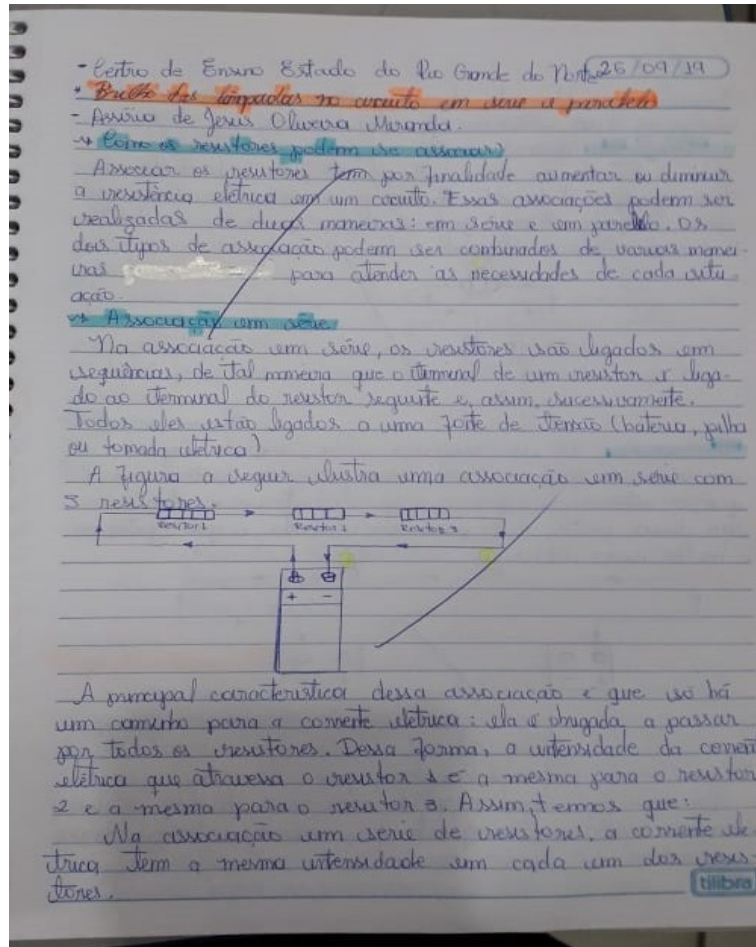 - Centro de Ensino Estado do Rio Grande do Norte 26/09/19
• Brilho das lâmpadas no circuito em série e paralelo
- Assíria de Jesus Oliveira Miranda.
Como os resistores podem se associar?
Associar os resistores tem por finalidade aumentar ou diminuir
a resistência elétrica em um circuito. Essas associações podem ser
realizadas de duas maneiras: em série e em paralelo. Os
dois tipos de associação podem ser combinados de varias manei-
ras para atender as necessidades de cada situ
ação.
Associação em série.
Na associação em série, os resistores são ligados em
sequências, de tal maneira que o terminal de um resistor é liga-
do ao terminal do resistor seguinte e, assim, sucessivamente.
Todos eles estão ligados a uma fonte de tensão (bateria, pilha
ou tomada elétrica)
A figura a seguir ilustra uma associação em série com
3 resistores.
Resistor 1 Resistor 2 Resistor 3
+ -
A principal característica dessa associação é que só há
um caminho para a corrente elétrica: ela é obrigada a passar
por todos os resistores. Dessa forma, a intensidade da corrent
elétrica que atravessa o resistor 1 é a mesma para o resistor
2 e a mesma para o resistor 3. Assim, temos que:
Na associação em série de resistores, a corrente elé-
trica tem a mesma intensidade em cada um dos resis-
tores.
tilibra